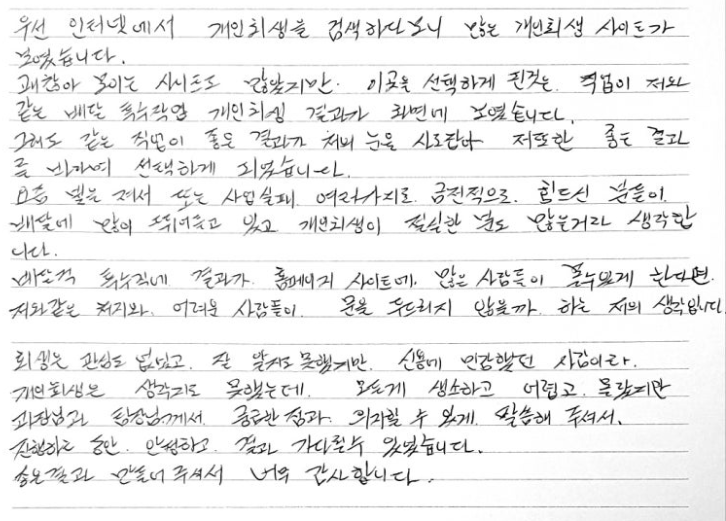 우선 인터넷에서 개인회생을 검색하다보니 많은 개인회생 사이트가
보였습니다.
괜찮아 보이는 사이트도 많았지만. 이곳을 선택하게 된것은. 직업이 저와
같은 배달 특수직업 개인회생 결과가 화면에 보였습니다.
그래도 같은 직업이 좋은 결과가 저의 눈을 사로잡아 저또한 좋은 결과
를 바라며 선택하게 되었습니다.
요즘 빚을 져서 또는 사업실패. 여러가지로. 금전적으로. 힘드신 분들이.
배달에 많이 뛰어들고 있고 개인회생이 절실한 분도 많을거라 생각합
니다.
배달직 특수직에 결과가. 홈페이지 사이트에. 많은 사람들이 볼수있게 한다면.
저와같은 처지와. 어려운 사람들이. 문을 두드리지 않을까. 하는 저의 생각입니다.
회생은 관심도 없었고. 잘 알지도 못했지만. 신용에 민감했던 사람이라.
개인회생은 생각지도 못했는데. 모든게 생소하고 어렵고. 몰랐지만
과장님과 팀장님께서. 궁금한 점과. 의지할 수 있게. 말씀해 주셔서.
진행하는 동안. 안심하고. 결과 기다릴수 있었습니다.
좋은결과 만들어 주셔서 너무 감사합니다.